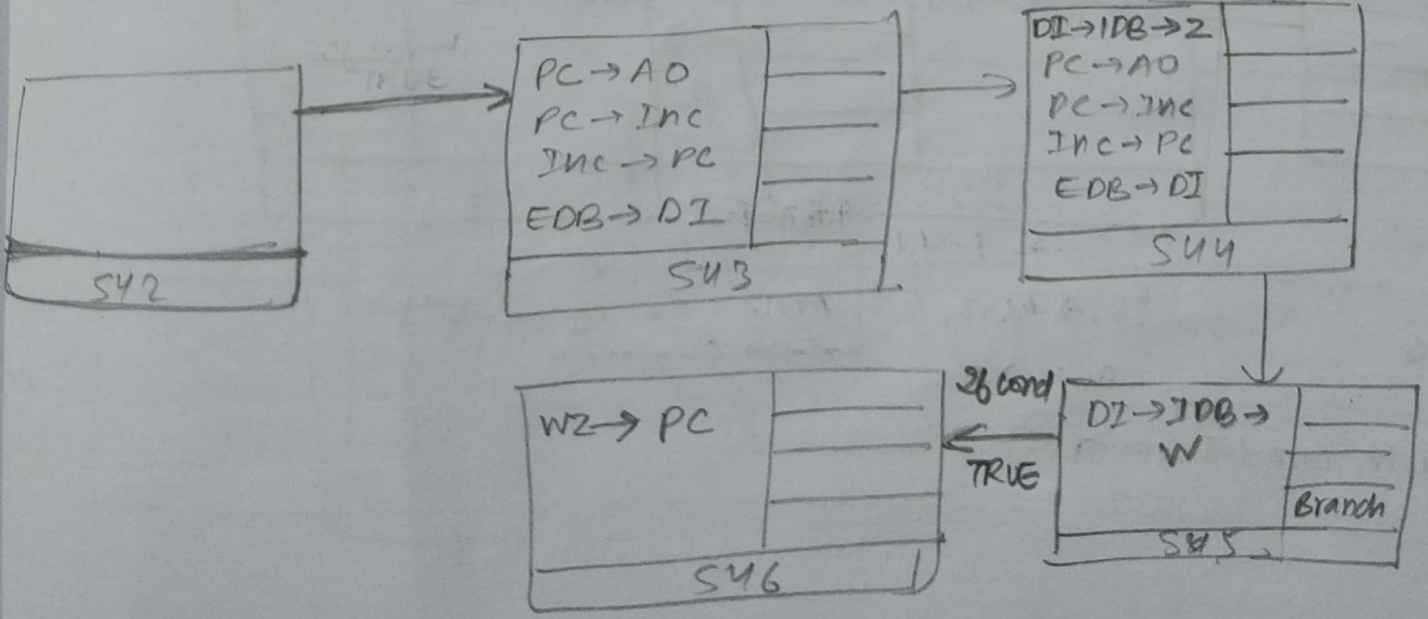 S42
PC→AO
PC→Inc
Inc→PC
EDB→DI
S43
DI→IDB→Z
PC→AO
PC→Inc
Inc→PC
EDB→DI
S44
DI→IDB→
W
Branch
S45
If cond
TRUE
WZ→PC
S46